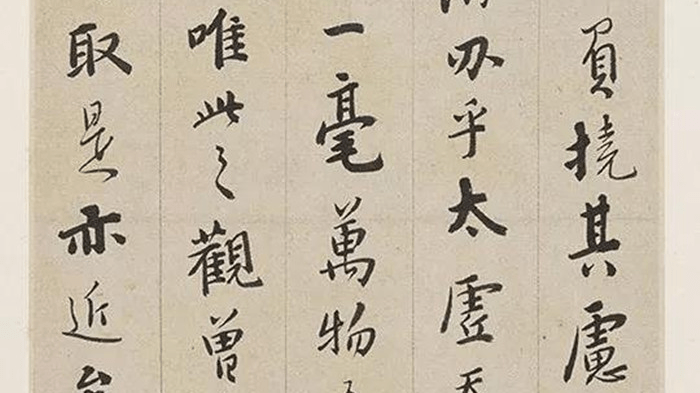 撓其慮
乎太虛天
一毫萬物
唯此之觀曾
取是亦近